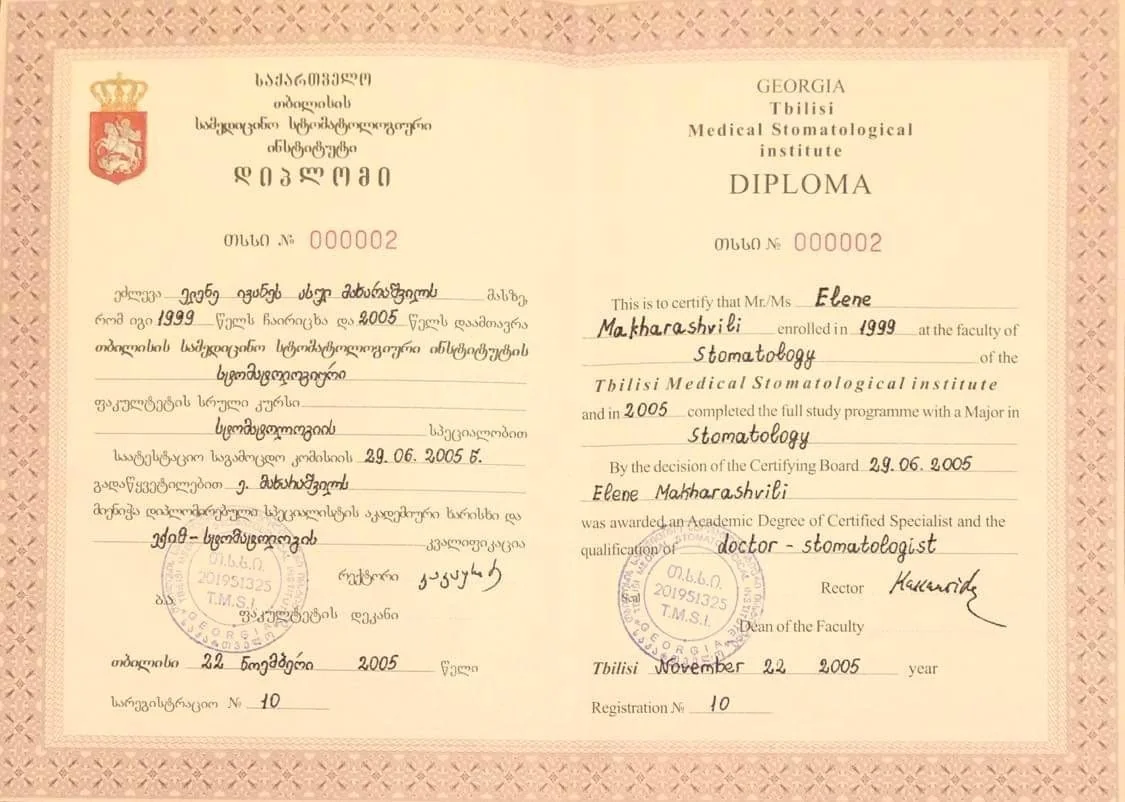 საქართველო
თბილისის
სამედიცინო სტომატოლოგიური
ინსტიტუტი
დიპლომი
თსსი № 000002
ეძლევა ელენე ივანეს ასულ მახარაშვილს მასზე,
რომ იგი 1999 წელს ჩაირიცხა და 2005 წელს დაამთავრა
თბილისის სამედიცინო სტომატოლოგიური ინსტიტუტის
სტომატოლოგიური
ფაკულტეტის სრული კურსი
სტომატოლოგიის სპეციალობით
საატესტაციო საგამოცდო კომისიის 29.06.2005 წ.
გადაწყვეტილებით ე. მახარაშვილს
მიენიჭა დიპლომირებული სპეციალისტის აკადემიური ხარისხი და
ექიმ-სტომატოლოგის კვალიფიკაცია
რექტორი
ბ.ა.
ფაკულტეტის დეკანი
თ.ს.ს.ი.
201951325
T.M.S.I.
GEORGIA
საქართველო
თბილისი 22 ნოემბერი 2005 წელი
სარეგისტრაციო № 10
GEORGIA
Tbilisi
Medical Stomatological
institute
DIPLOMA
თსსი № 000002
This is to certify that Mr./Ms Elene
Makharashvili enrolled in 1999 at the faculty of
Stomatology of the
Tbilisi Medical Stomatological institute
and in 2005 completed the full study programme with a Major in
Stomatology
By the decision of the Certifying Board 29.06.2005
Elene Makharashvili
was awarded an Academic Degree of Certified Specialist and the
qualification of doctor - stomatologist
Rector
Dean of the Faculty
თ.ს.ს.ი.
201951325
T.M.S.I.
TBILISI MEDICAL STOMATOLOGICAL INSTITUTE
GEORGIA
საქართველო
Tbilisi November 22 2005 year
Registration № 10